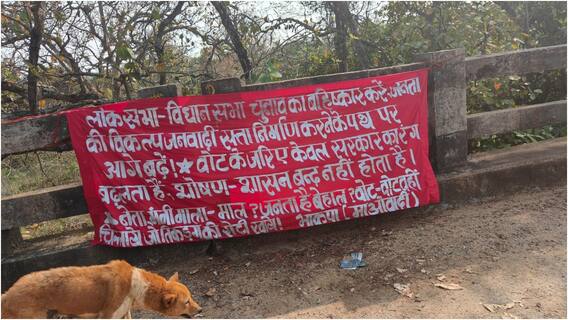 लोकसभा-विधान सभा चुनाव का बहिष्कार करें-जनता
की विकल्प जनवादी सत्ता निर्माण करने के पथ पर
आगे बढ़ें! ★ वोट के जरिए केवल सरकार का रंग
बदलता है, शोषण-शासन बन्द नहीं, होता है।
★ नेता, मंत्री माला-माल? जनता है बेहाल? वोट-वोट वही
चिल्लाये जो की रोटी खाये। भाकपा (माओवादी)